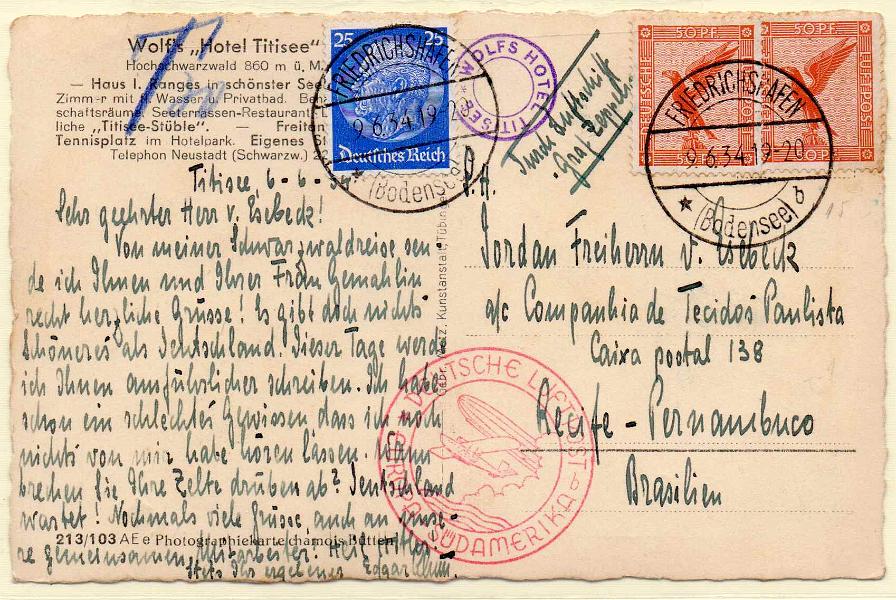 Wolf's „Hotel Titisee"
Hochschwarzwald 860 m ü. M.
— Haus I. Ranges in schönster See
Zimm-r mit fl. Wasser u. Privatbad.
schaftsräume, Seeterrassen-Restaurant
liche „Titisee-Stüble". — Freiten
Tennisplatz im Hotelpark. Eigenes
Telephon Neustadt (Schwarzw.)
25 25
Deutsches Reich
FRIEDRICHSHAFEN
9.6.34.19-20
(Bodensee)
WOLFS HOTEL
TITISEE
Durch Luftschiff
Graf Zeppelin
50 PF. 50 PF.
FRIEDRICHSHAFEN
9.6.34.19-20
(Bodensee) b
Titisee, 6-6-34
Sehr geehrter Herr v. Esebeck!
Von meiner Schwarzwaldreise sen-
de ich Ihnen und Ihrer Frau Gemahlin
recht herzliche Grüsse! Es gibt doch nichts
schöneres als Deutschland. Dieser Tage werde
ich Ihnen ausführlicher schreiben. Ich habe
schon ein schlechtes Gewissen, dass ich noch
nichts von mir habe hören lassen. Wann
brechen Sie Ihre Zelte drüben ab? Deutschland
wartet! Nochmals viele Grüsse, auch an unse-
re gemeinsamen Mitarbeiter. Heil Hitler.
Stets Ihr ergebener Edgar
213/103 AE e Photographiekarte chamois Bütten
Gebr. Metz, Kunstanstalt, Tübingen
P.H.
Jordan Freiherrn v. Esebeck
a/c Companhia de Tecidos Paulista
Caixa postal 138
Recife - Pernambuco
Brasilien
DEUTSCHE LUFTPOST
EUROPA - SÜDAMERIKA
c
15